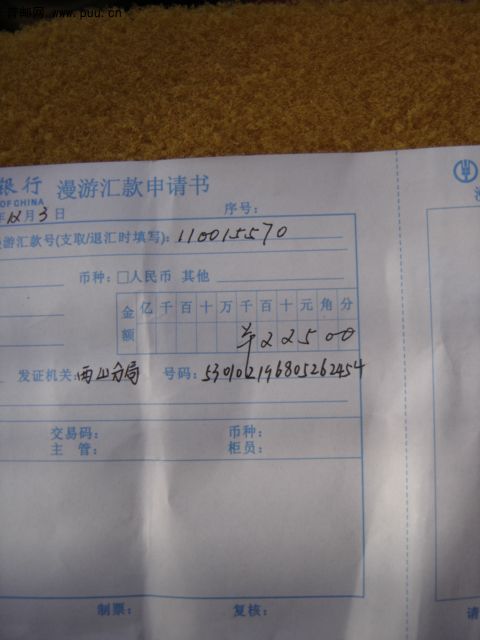 青邮网 www.puu.cn
银行 漫游汇款申请书
OF CHINA
年12月3日 序号:
漫游汇款号(支取/退汇时填写): 110015570
币种: □人民币 其他
金额 亿 千 百 十 万 千 百 十 元 角 分
¥22500
发证机关: 西山分局 号码: 530102196805262454
交易码: 币种:
主 管: 柜员:
制票: 复核:
请